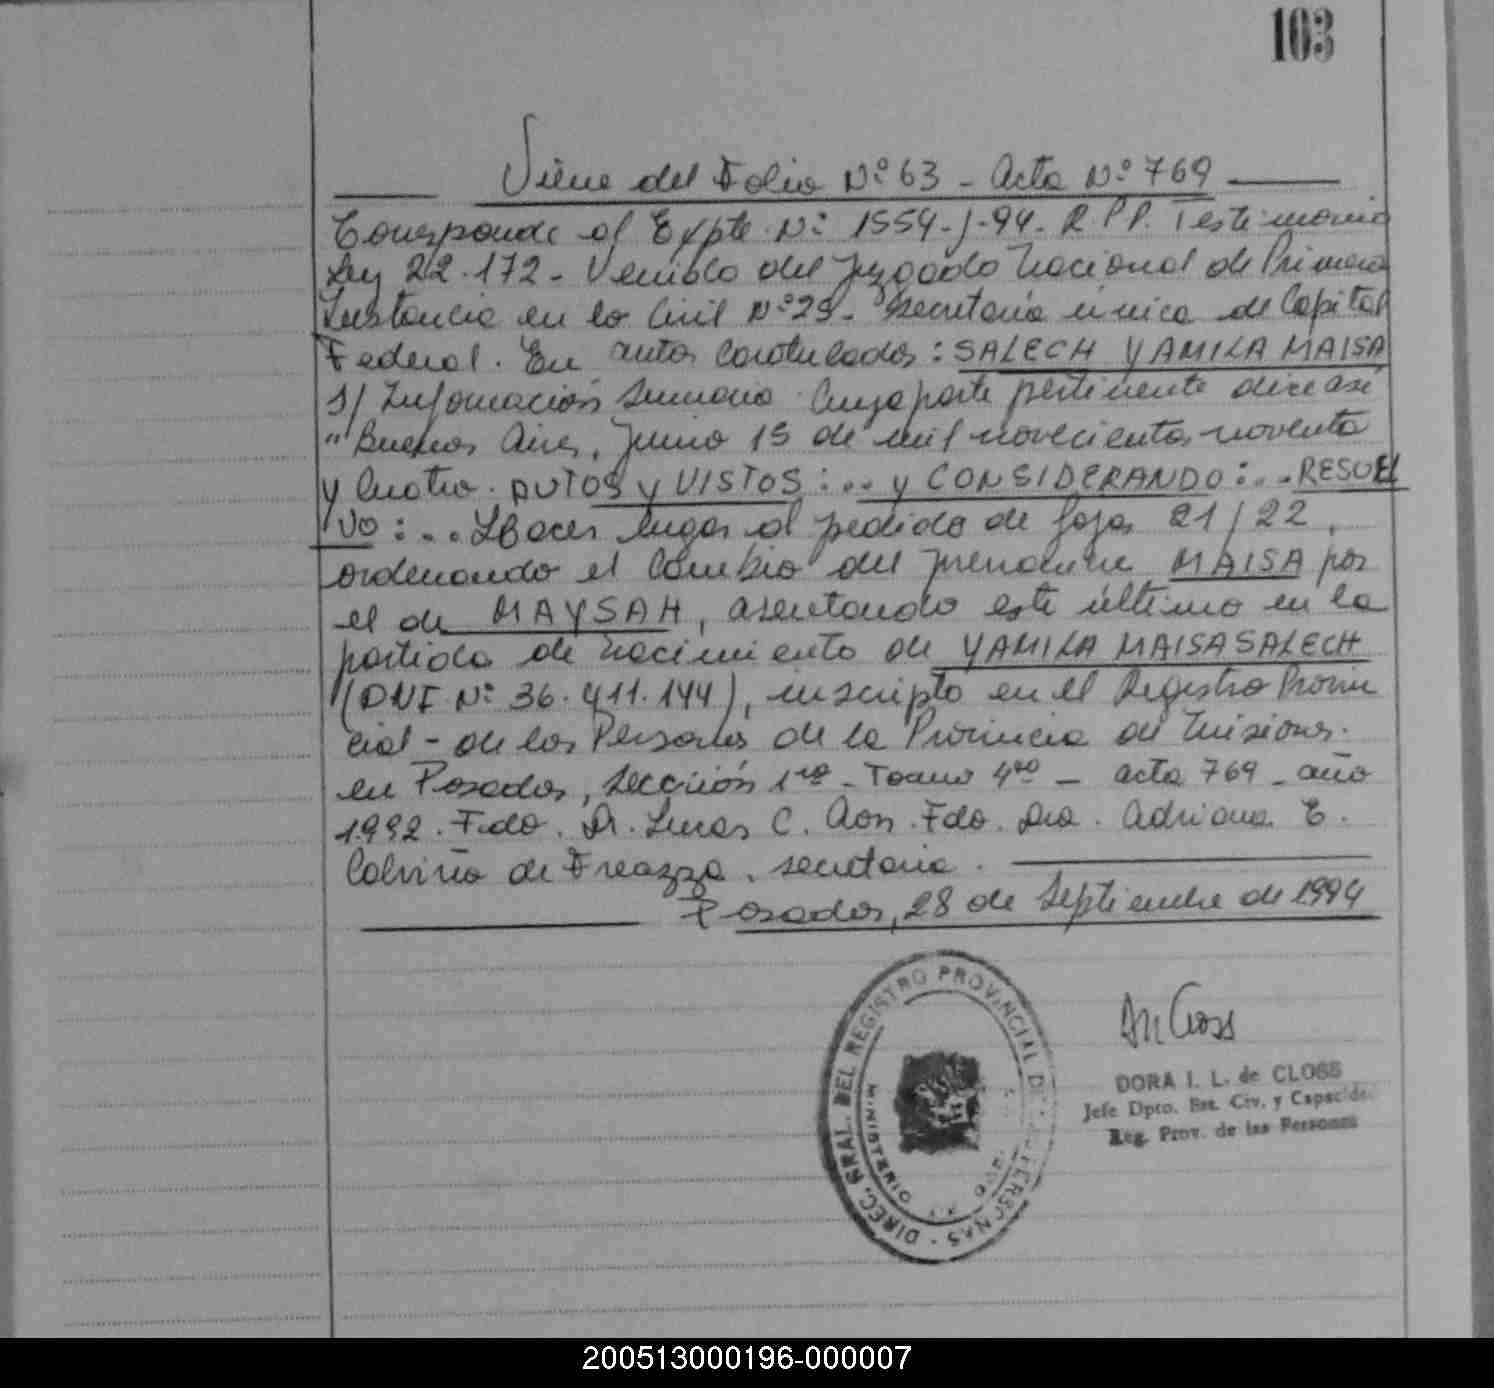 103
Viene del Folio Nº 63 - Acta Nº 769
Corresponde al Expte. Nº 1554-J-94. R.P.P. Testimonio
Ley 22.172 - Venido del Juzgado Nacional de Primera
Instancia en lo Civil Nº 29 - Secretaría única de Capital
Federal. En autos Caratulados: SALECH YAMILA MAISA
s/ Información Sumaria. Cuya parte pertinente dice así
"Buenos Aires, Junio 15 de mil novecientos noventa
y Cuatro. AUTOS y VISTOS:... y CONSIDERANDO:... RESUEL
VO:... Hacer lugar al pedido de fojas 21/22,
ordenando el Cambio del prenombre MAISA por
el de MAYSAH, asentando este último en la
partida de nacimiento de YAMILA MAISA SALECH
(DNI. Nº 36.411.144), inscripto en el Registro Provin
cial - de las Personas de la Provincia de Misiones.
en Posadas, Sección 1ra - Tomo 4to - acta 769 - año
1.992. Fdo. Dr. Lucas C. Aon. Fdo. Dra. Adriana E.
Calviño de Freazza. secretaria.
Posadas, 28 de Septiembre de 1994
DIREC. GRAL. DEL REGISTRO PROVINCIAL DE PERSONAS
MINISTERIO
DORA I. L. de CLOSS
Jefe Dpto. Est. Civ. y Capacidad
Reg. Prov. de las Personas
200513000196-000007